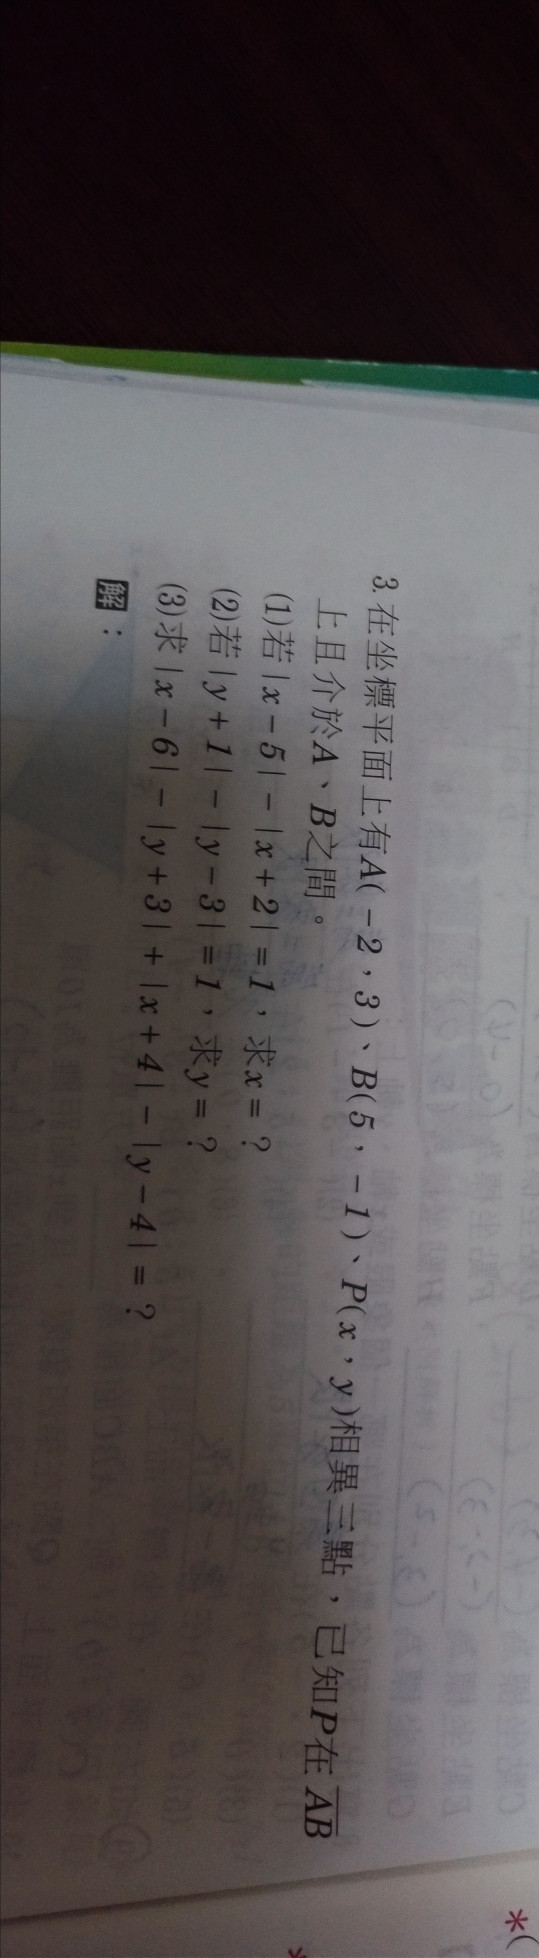 3. 在坐標平面上有A(－2，3)、B(5，－1)、P(x，y)相異三點，已知P在 \overline{AB}
上且介於A、B之間。
(1)若|x－5|－|x＋2|＝1，求x＝？
(2)若|y＋1|－|y－3|＝1，求y＝？
(3)求|x－6|－|y＋3|＋|x＋4|－|y－4|＝？
解：
*(